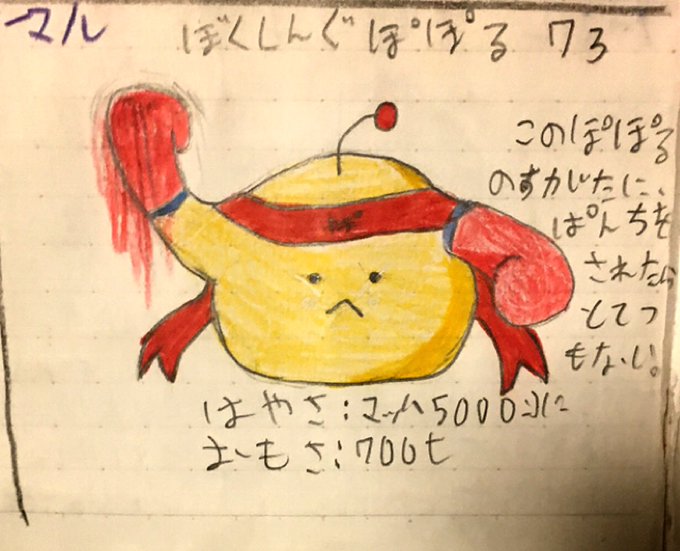 マル
ぼくしんぐ ぽぽる 73
このぽぽる
のすがじたに、
ぱんちを
されたら
とてつ
もない。
はやさ:マッハ5000
おもさ:700t